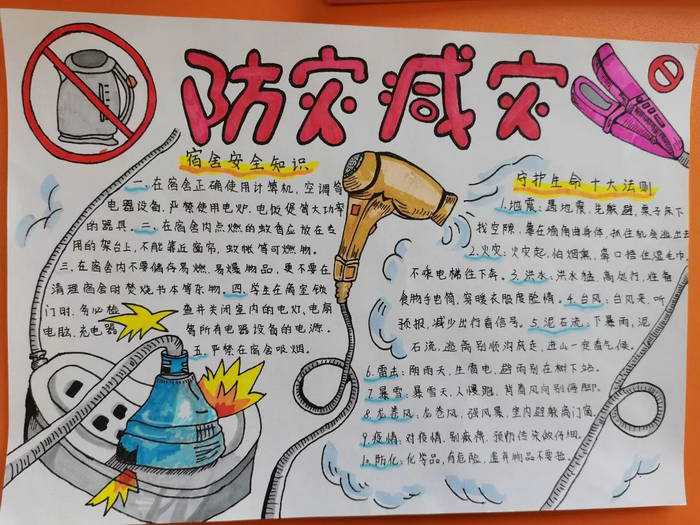 防灾减灾
宿舍安全知识
一、在宿舍正确使用计算机,空调等
电器设备,严禁使用电炉、电饭煲等大功率
的器具。二、在宿舍内点燃的蚊香应放在专
用的架台上,不能靠近窗帘,蚊帐等可燃物。
三、在宿舍内不要储存易燃、易爆物品,更不要在
清理宿舍时焚烧书本等杂物。四、学生在离室锁
门时,务必检查并关闭室内的电灯,电扇
电脑,充电器等所有电器设备的电源。
五、严禁在宿舍吸烟。
守护生命十大法则
1.地震:遇地震,先躲避,桌子床下
找空隙,靠在墙角曲身体,抓住机会逃出去
2.火灾:火灾起,怕烟熏,鼻口捂住湿毛巾
不乘电梯往下奔。3.洪水:洪水猛,高处行,准备
食物手电筒,穿暖衣服度险情。4.台风:台风来,听
预报,减少出行看信号。5.泥石流:下暴雨,泥
石流,逃离别顺沟底走,进山一定看气候。
6.雷击:阴雨天,生雷电,避雨别在树下站。
7.暴雪:暴雪天,人慢跑,背着风向别停脚。
8.龙卷风:龙卷风,强风暴,室内躲避离门窗。
9.疫情:对疫情,别麻痹,预防传染做仔细。
10.防化:化学品,有危险,遗弃物品不要捡。